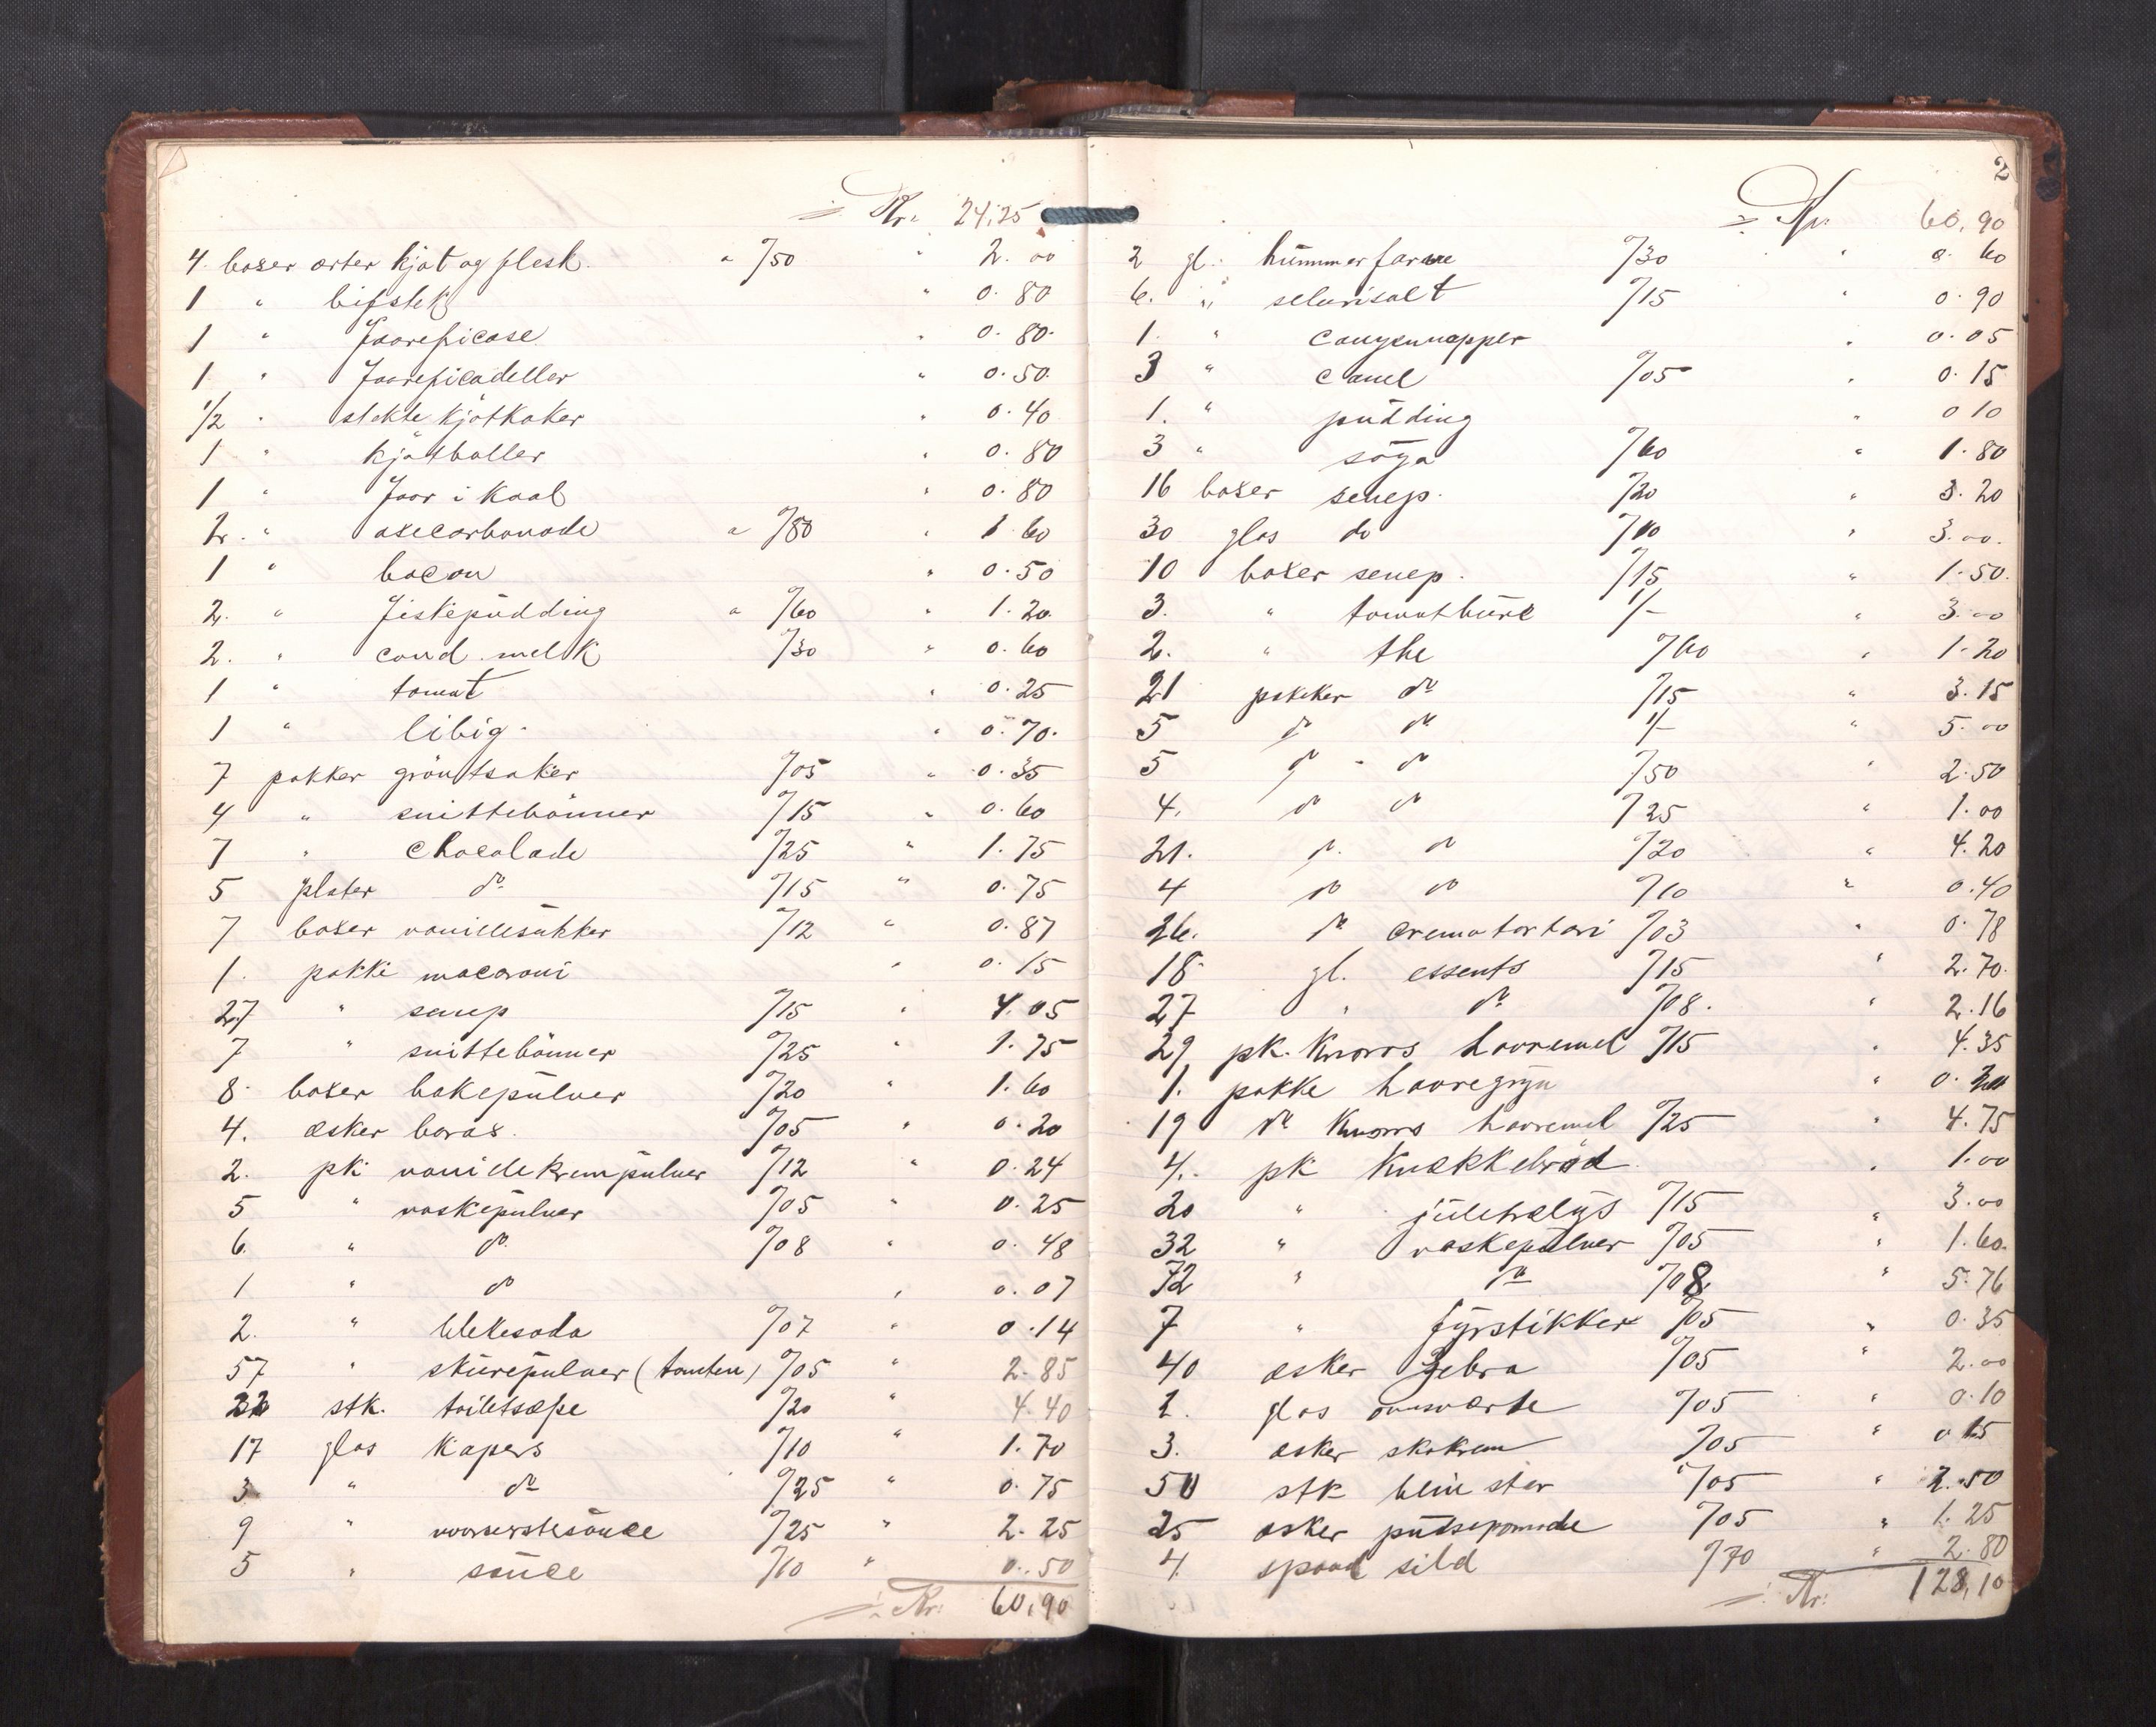 Kr. 24,25
4 boxer ærter kjøt og flesk " %50 " 2.00
1 " bifstek " 0.80
1 " Faarefricase " 0.80
1 " Faarefricadeller " 0.50
1/2 " stekte kjøtkaker " 0.40
1 " kjøtboller " 0.80
1 " Faar i kaal " 0.80
2 " oxecarbonade " %80 " 1.60
1 " bacon " 0.50
2. " Fiskepudding " %60 " 1.20
2. " cond. melk %30 " 0.60
1 " tomat " 0.25
1 " libig " 0.70
7 pakker gröntsaker %05 " 0.35
4 " snittebönner %15 " 0.60
7 " Chocolade %25 " 1.75
5 plater do %15 " 0.75
7 boxer vanillesukker %12 " 0.87
1. pakke macaroni " 0.15
27 " senep %15 " 4.05
7 " snittebönner %25 " 1.75
8 boxer bakepulver %20 " 1.60
4. æsker borax %05 " 0.20
2. pk vanillekrempulver %12 " 0.24
5 " vaskepulver %05 " 0.25
6 " do %08 " 0.48
1 " do " 0.07
2. " blekesoda %07 " 0.14
57 " skurepulver (tomten) %05 " 2.85
22 stk. toiletsæpe %20 " 4.40
17 glas kapers %10 " 1.70
3 " do %25 " 0.75
9 " worserstesauce %25 " 2.25
5 " sauce %10 " 0.50
Kr. 60,90
2
Kr. 60,90
2 gl. hummerfarve %30 " 0.60
6. " selerisalt %15 " 0.90
1. " 0.05
3 " canel %05 " 0.15
1. " pudding " 0 10
3 " söya %60 " 1.80
16 boxer senep %20 " 3.20
30 glas do %10 " 3.00
10 boxer senep %15 " 1.50
3. " 1/- " 3.00
2. " the %60 " 1.20
21 pakker do %15 " 3.15
5 do do 1/- " 5.00
5 do - do %50 " 2.50
4. do do %25 " 1.00
21. do do %20 " 4.20
4 do do %10 " 0.40
26. do crematartari %03 " 0.78
18 gl. essents %15 " 2.70
27 " do %08 " 2.16
29 pk. Knorrs havremel %15 " 4.35
1. pakke havregryn " 0.
19 do Knorrs havremel %25 " 4.75
4. pk Knækkebröd " 1.00
20 " juletrelys %15 " 3.00
32 " vaskepulver %05 " 1.60
72 " do %08 " 5.76
7 " fyrstikker %05 " 0.35
40 æsker Zebra %05 " 2.00
2. glas ovnsværte %05 " 0.10
3. æsker skokrem %05 " 0 15
50 stk %05 " 2.50
25 æsker pudsepomade %05 " 1.25
4 spand sild %70 " 2.80
Kr. 128,10